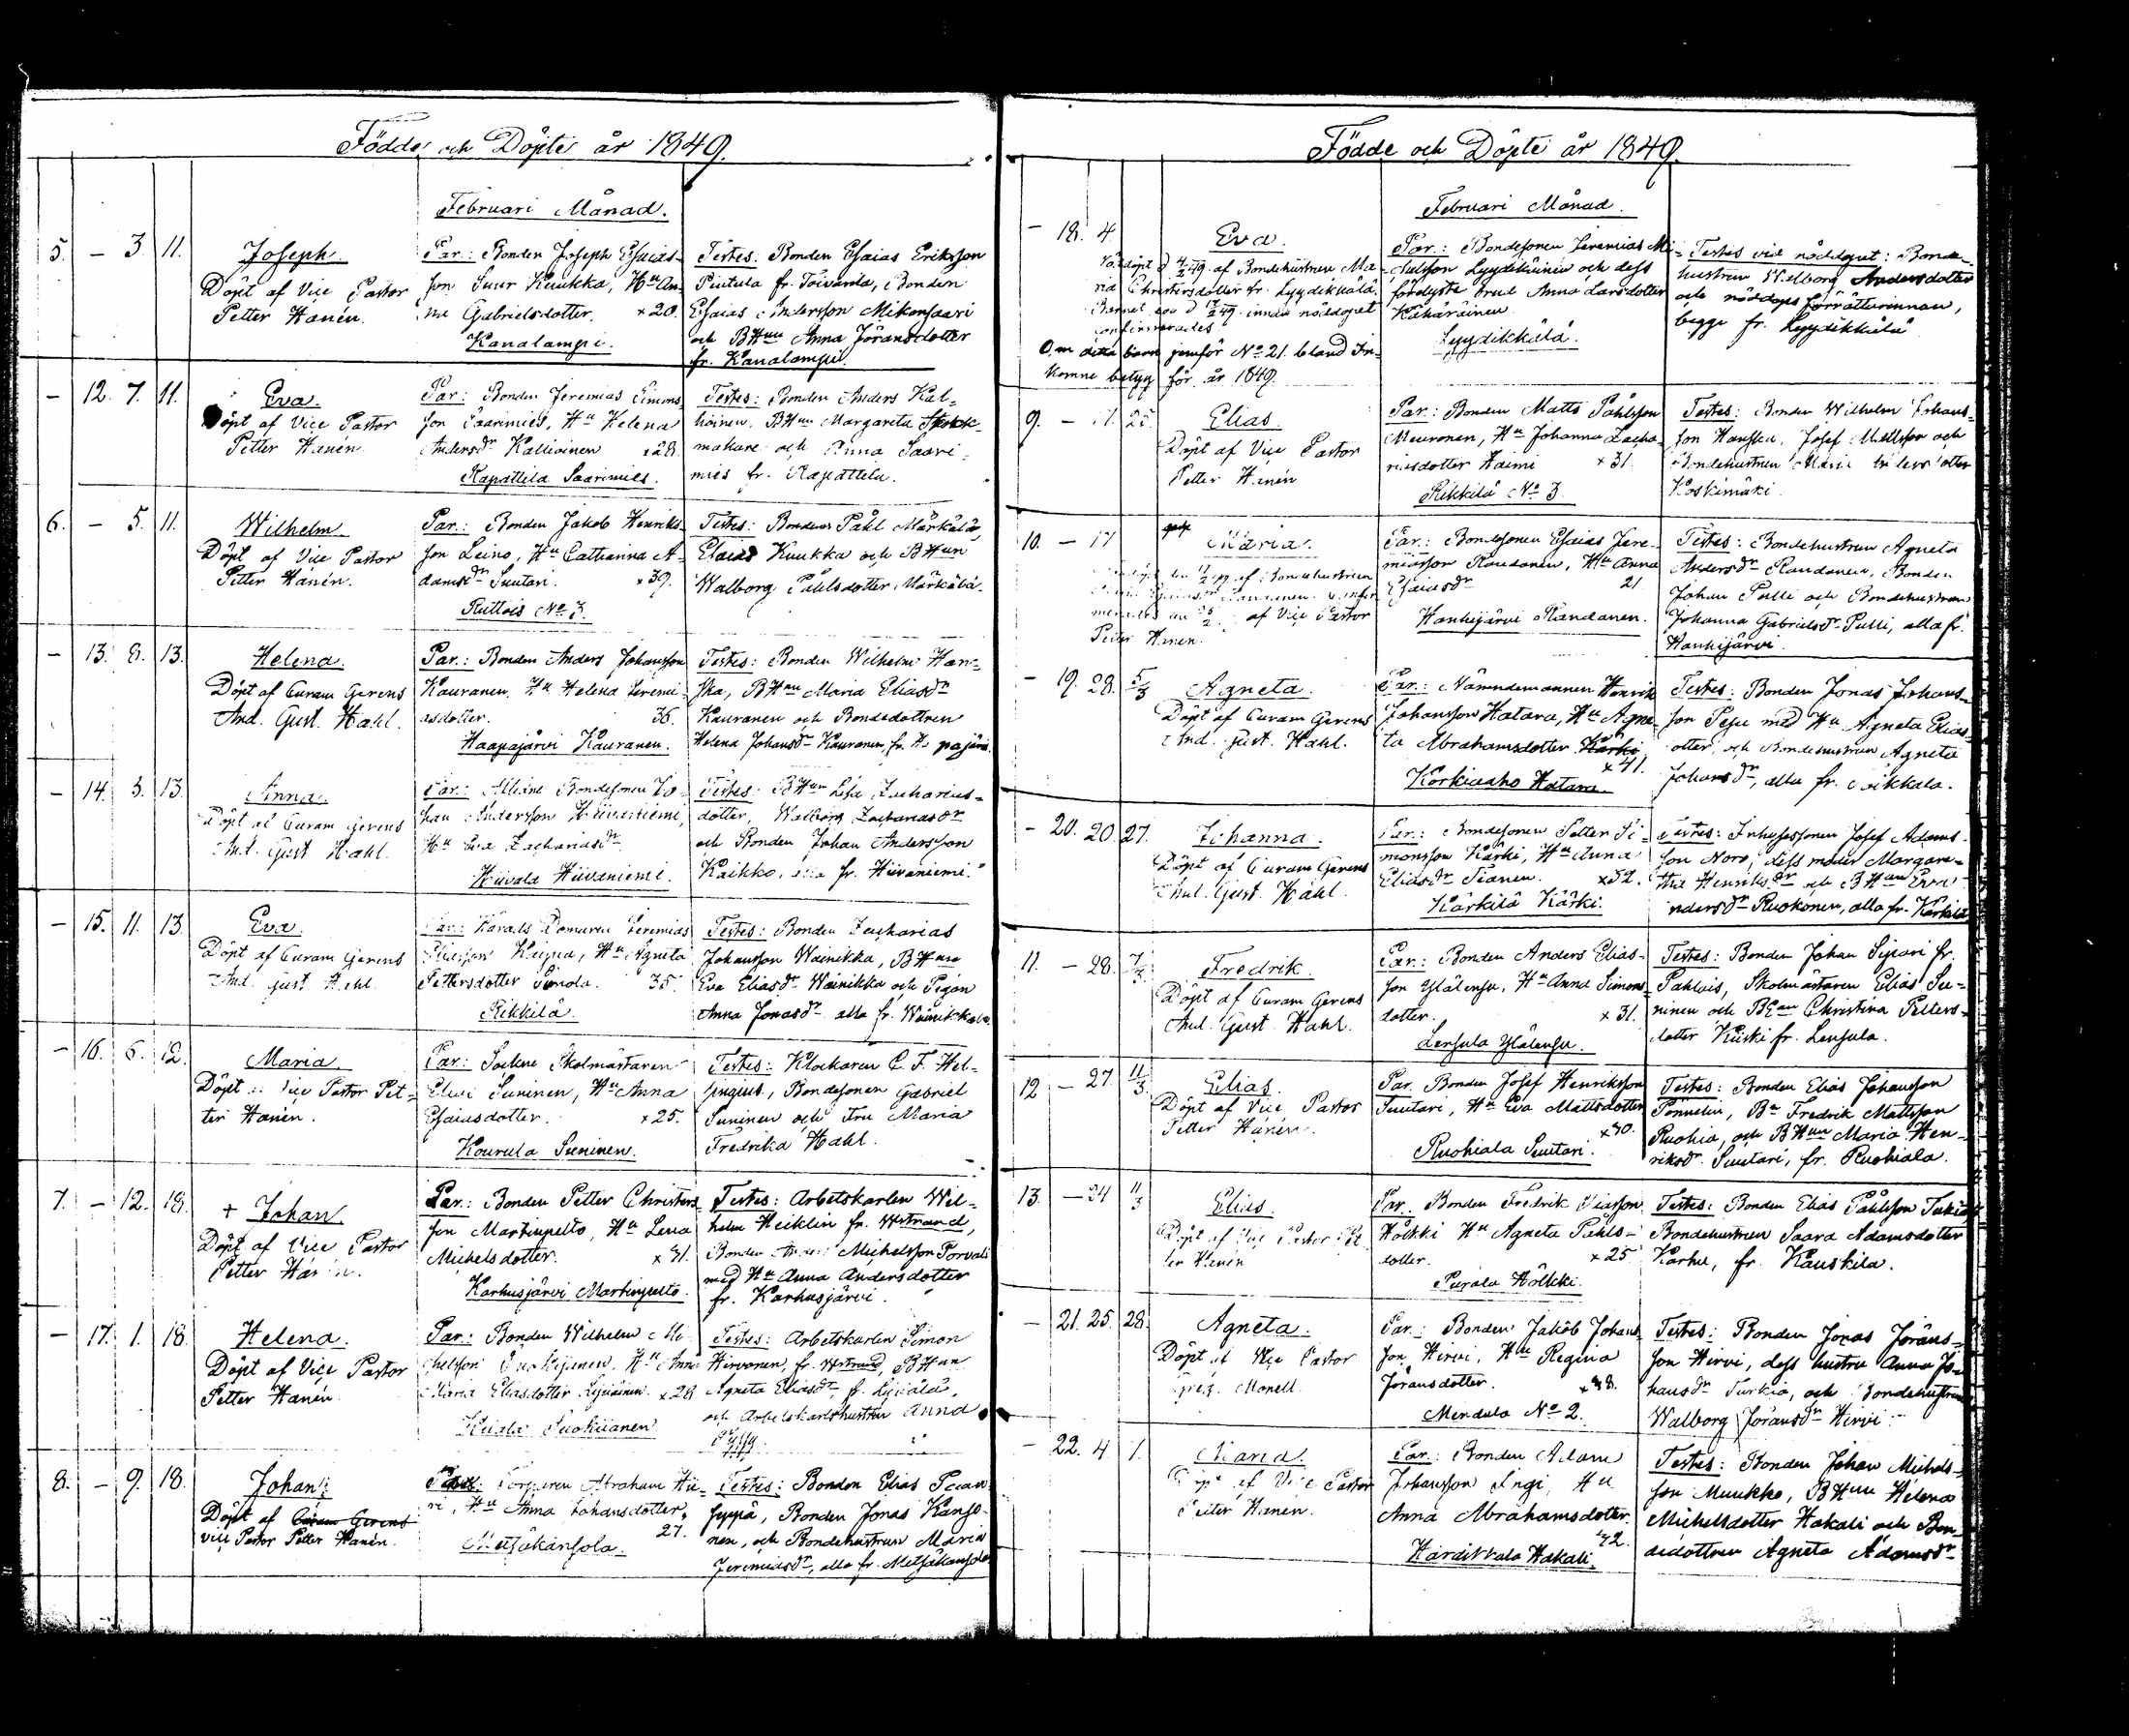 Födde och Döpte år 1849.
Februari Månad.
5. — 3. 11. Joseph.
Döpt af Vice Pastor
Petter Hanén.
Par: Bonden Joseph Esaias-
son Suur Kuukka, Hu An-
na Gabrielsdotter. × 20.
Kanalampi.
Testes: Bonden Esaias Eriksson
Pintula fr. Toivarila, Bonden
Esaias Andersson Mikonsaari
och BHun Anna Jöransdotter
fr. Kanalampi.
— 12. 7. 11. Eva.
Döpt af Vice Pastor
Petter Hanén
Par: Bonden Jeremias Simons
son Saarimies, Hu Helena
Andersdr Kallioinen × 28.
Rapattila Saarimies.
Testes: Bonden Anders Kal-
hoinen, BHun Margareta
makare och Anna Saari-
mies fr. Rapattila.
6. — 5. 11. Wilhelm.
Döpt af Vice Pastor
Petter Hanén.
Par: Bonden Jakob Henriks-
son Leino, Hu Catharina A-
damsdr Suutari. × 39.
Ruttois No 3.
Testes: Bonden Påhl Märkälä,
Elaias Kuukka och BHun
Walborg Påhlsdotter Märkälä.
— 13. 8. 13. Helena.
Döpt af Curam Gerens
And. Gust. Hahl.
Par: Bonden Anders Johansson
Kauranen, Hu Helena Jeremi-
asdotter. 36.
Haapajärvi Kauranen.
Testes: Bonden Wilhelm Han-
ska, BHun Maria Eliasdr
Kauranen och Bondedottren
Helena Johansdr Kauranen, fr. Hapajärvi.
— 14. 3. 13. Anna.
Döpt af Curam Gerens
And. Gust Hahl.
Par: Bondesonen Jo-
han Andersson Hiivaniemi,
Hu Eva Zachariasdr
Hiivala Hiivaniemi.
Testes: BHun Lisa Zacharias-
dotter, Walborg Zachariasdr
och Bonden Johan Andersson
Kaikko, alla fr. Hiivaniemi.
— 15. 11. 13. Eva.
Döpt af Curam Gerens
And. Gust. Hahl
Par: Härads Domaren Jeremias
Eliasson Hu Agneta
Pettersdotter 35.
Rikkilä.
Testes: Bonden Zacharias
Johansson Wainikka, BHun
Eva Eliasdr Wainikka och Pigan
Anna Jonasdr alla fr. Wainikkala.
— 16. 6. 12. Maria.
Döpt af Vice Pastor Pet-
ter Hanén.
Par: Sockne Skolmästaren
Elias Suninen, Hu Anna
Esaiasdotter. × 25.
Kourula Suninen.
Testes: Klockaren C. F. Hel-
singius, Bondesonen Gabriel
Suninen och Fru Maria
Fredrika Hahl.
7. — 12. 18. + Johan.
Döpt af Vice Pastor
Petter Hanén.
Par: Bonden Petter Christers
son Martinpelto, Hu Lena
Michelsdotter. × 31.
Karhusjärvi Martinpelto.
Testes: Arbetskarlen Wil-
helm Heiklin fr. Wstrand,
Bonden Michelsson Porvali
med Hu Anna Andersdotter
fr. Karhusjärvi.
— 17. 1. 18. Helena.
Döpt af Vice Pastor
Petter Hanén
Par: Bonden Wilhelm Mi-
chelsson Hu Anna
Maria Eliasdotter × 28
Testes: Arbetskarlen Simon
Hirvonen, fr. Wstrand, BHun
Agneta Eliasdr
och Arbetskarlshustrun Anna
8. — 9. 18. Johan.
Döpt af Curam Gerens
vice Pastor Petter Hanén.
Par: Torparen Abraham Hii-
ri, Hu Anna Johansdotter.
27.
Metsäkansola.
Testes: Bonden Elias
Seppä, Bonden Jonas Kanso-
nen, och Bondehustrun Maria
Jeremiasdr, alla fr. Metsäkansola
Födde och Döpte år 1849.
Februari Månad.
— 18. 4. Eva.
Nöddöpt d 4/2 49 af Bondehustrun Ma-
ria Christersdotter fr. Lyydikkälä.
Barnet innan nöddopet
confirmerades
Om detta barn jemför No 21. bland In-
komne betyg för år 1849.
Par: Bondesonen Jeremias Mi-
chelsson Lyydikäinen och dess
förelyste brud Anna Larsdotter
Kähäräinen
Lyydikkälä.
Testes vid nöddopet: Bonde-
hustrun Walborg Andersdotter
och nöddops förrätterinnan,
begge fr. Lyydikkälä
9. — 11. 25. Elias.
Döpt af Vice Pastor
Petter Hanén
Par: Bonden Matts Påhlsson
Meuronen, Hu Johanna Zacha-
riasdotter Haimi × 31.
Rikkilä No 3.
Testes: Bonden Wilhelm Johans-
son Hanska, Josef Mattsson och
Bondehustrun Maria
Koskimäki.
10. — 17 Maria.
af Bondehustrun
af Vice Pastor
Peter Hanén.
Par: Bondesonen Esaias Jere-
miasson Randanen, Hu Anna
Esaiasdr 21
Hanhijärvi Randanen.
Testes: Bondehustrun Agneta
Andersdr Randanen, Bonden
Johan Pulli och Bondehustrun
Johanna Gabrielsdr Pulli, alla fr.
Hanhijärvi.
— 19. 28. 5/3 Agneta.
Döpt af Curam Gerens
And. Gust. Hahl.
Par: Nämndemannen Henrik
Johansson Hatara, Hu Agne-
ta Abrahamsdotter Kärki
× 41.
Korkiaaho Hatara.
Testes: Bonden Jonas Johans-
son Pesu med Hu Agneta Elias-
dotter, och Bondehustrun Agneta
Johansdr, alla fr.
— 20. 20 27. Johanna.
Döpt af Curam Gerens
And. Gust. Hahl.
Par: Bondesonen Petter Si-
monsson Kärki, Hu Anna
Eliasdr Sianen. × 32.
Kärkilä Kärki.
Testes: Inhysessonen Josef Adams-
son Noro, dess moder Margare-
tha Henriksdr och BHun Eva
Andersdr Ruokonen, alla fr. Kärkilä
11. — 28. Fredrik.
Döpt af Curam Gerens
And. Gust. Hahl.
Par: Bonden Anders Elias-
son Yläleusu, Hu Anna Simons-
dotter. × 31.
Lensula
Testes: Bonden Johan Sipari fr.
Pahlois, Skolmästaren Elias Su-
ninen och Christina Petters-
dotter Kiiski fr. Lensula.
12 — 27 11/3. Elias.
Döpt af Vice Pastor
Petter Hanén.
Par. Bonden Josef Henriksson
Suutari, Hu Eva Mattsdotter
× 30.
Ruohiala Suutari.
Testes: Bonden Elias Johansson
Pönneliu, Bn Fredrik Mattsson
Ruohia, och BHun Maria Hen-
riksdr Suutari, fr. Ruohiala.
13. — 24 11/3 Elias.
Döpt af Vice Pastor Pet
ter Hanén
Par. Bonden Fredrik Eliasson
Hölkki Hu Agneta Påhls-
dotter. × 25
Purala Hölkki.
Testes: Bonden Elias Påhlsson Tukia
Bondehustrun Saara Adamsdotter
Karhu, fr. Kauskila.
— 21. 25. 28. Agneta.
Döpt af Vice Pastor
Greg. Monell.
Par: Bonden Jakob Johans-
son Hirvi, Hu Regina
Jöransdotter. × 38.
Mendula No 2.
Testes: Bonden Jonas Jörans-
son Hirvi, dess hustru Anna Jo-
hansdr Turkia, och Bondehustrun
Walborg Jöransdr Hirvi.
— 22. 4 1. Maria.
Döpt af Vice Pastor
Petter Hanén.
Par: Bonden Adam
Johansson Hu
Anna Abrahamsdotter.
42.
Hardikkala Hakali.
Testes: Bonden Johan Michels-
son Muukko, BHun Helena
Michelsdotter Hakali och Bon-
dedottren Agneta Adamsdr